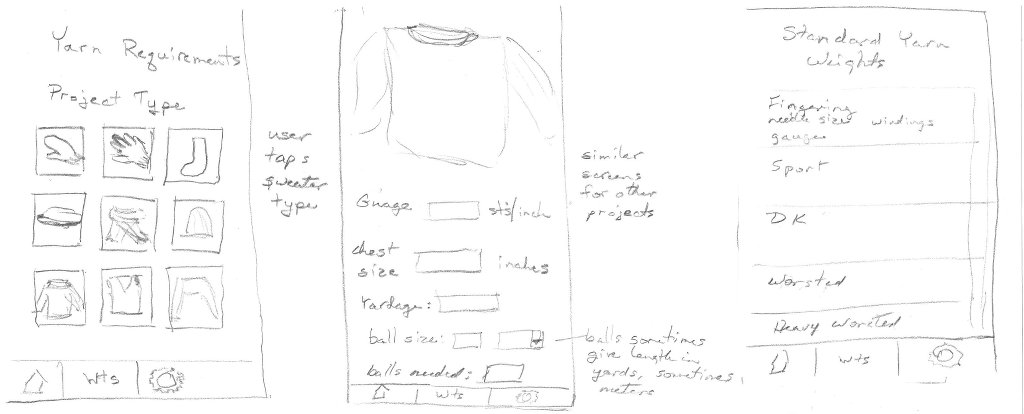 Yarn Requirements
Project Type
wts
user
taps
sweater
type
Guage sts/inch
chest
size inches
Yardage:
ball size:
balls needed:
wts
similar
screens
for other
projects
balls sometimes
give length in
yards, sometimes,
meters
Standard Yarn
Weights
Fingering
needle size windings
gauge
Sport
DK
Worsted
Heavy Worsted
wts